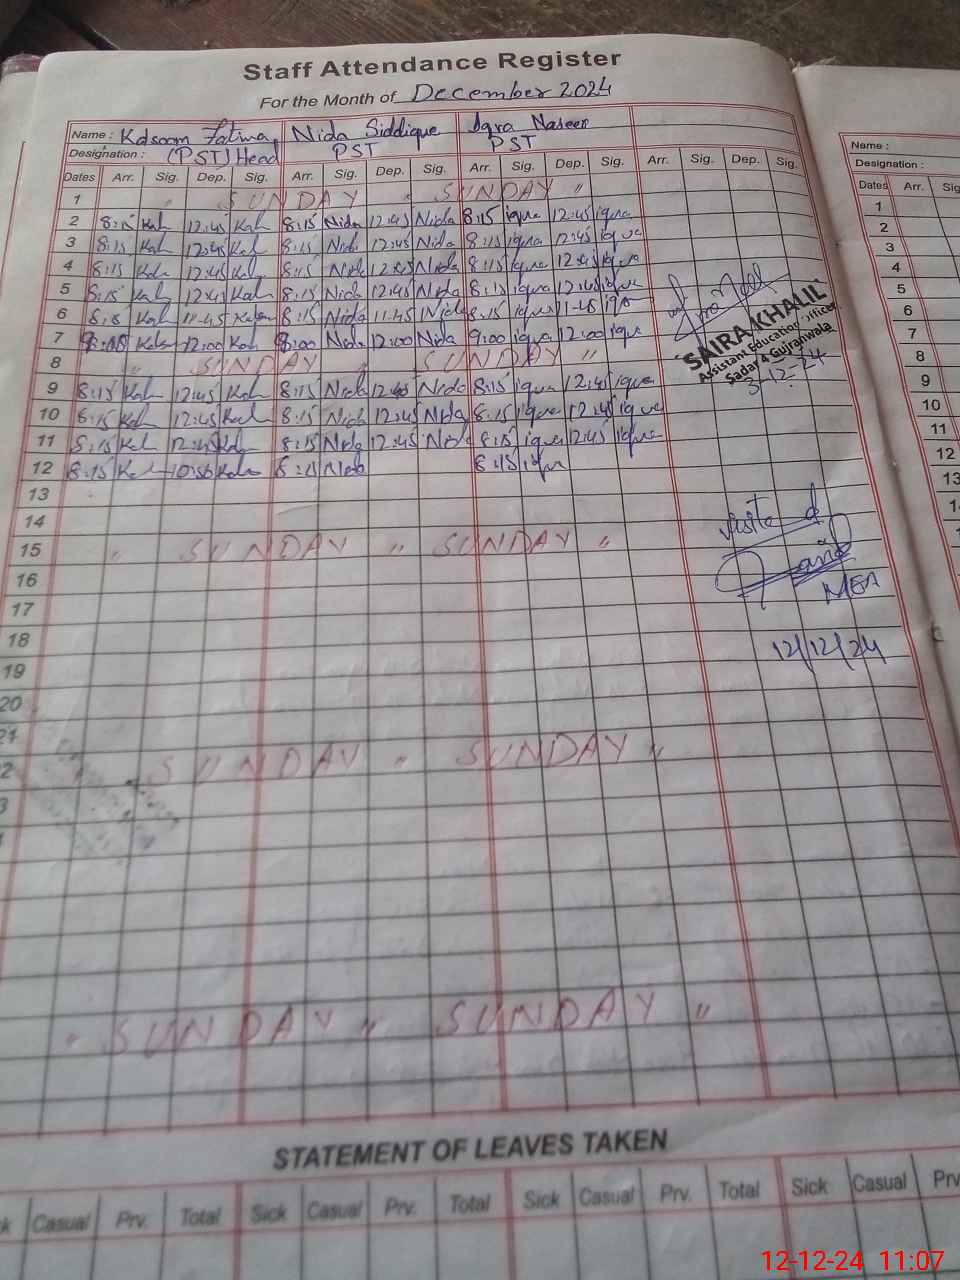 Staff Attendance Register
For the Month of December 2024
Name : Kalsoom Fatima Nida Siddique Iqra Naseer
Designation : (PST) Head PST PST
Dates Arr. Sig. Dep. Sig. Arr. Sig. Dep. Sig. Arr. Sig. Dep. Sig. Arr. Sig. Dep. Sig.
1 " SUNDAY " SUNDAY "
2 8:15 Kal 12:45 Kal 8:15 Nida 12:45 Nida 8:15 iqra 12:45 iqra
3 8:15 Kal 12:45 Kal 8:15 Nida 12:45 Nida 8:15 iqra 12:45 iqra
4 8:15 Kal 12:45 Kal 8:15 Nida 12:45 Nida 8:15 iqra 12:45 iqra
5 8:15 Kal 12:45 Kal 8:15 Nida 12:45 Nida 8:15 iqra 12:45 iqra
6 8:15 Kal 11:45 8:15 Nida 11:45 Nida 8:15 iqra 11:45 iqra
7 Kal 12:00 Kal 9:00 Nida 12:00 Nida 9:00 iqra 12:00 iqra
8 " SUNDAY " SUNDAY "
9 8:15 Kal 12:45 Kal 8:15 Nida 12:45 Nida 8:15 iqra 12:45 iqra
10 8:15 Kal 12:45 Kal 8:15 Nida 12:45 Nida 8:15 iqra 12:45 iqra
11 8:15 Kal 12:45 Kal 8:15 Nida 12:45 Nida 8:15 iqra 12:45 iqra
12 8:15 Kal 10:50 Kal Nida 8:15 iqra
13
14
15 " SUNDAY " SUNDAY "
16
17
18
19
20
21
SUNDAY " SUNDAY "
" SUNDAY " SUNDAY "
SAIRA KHALIL
Assistant Education Officer
Sadar 4 Gujranwala
3-12-24
visited
MEA
12/12/24
STATEMENT OF LEAVES TAKEN
Casual Prv. Total Sick Casual Prv. Total Sick Casual Prv. Total Sick Casual
Name :
Designation :
Dates Arr.
1
2
3
4
5
6
7
8
9
10
11
12
13
12-12-24 11:07